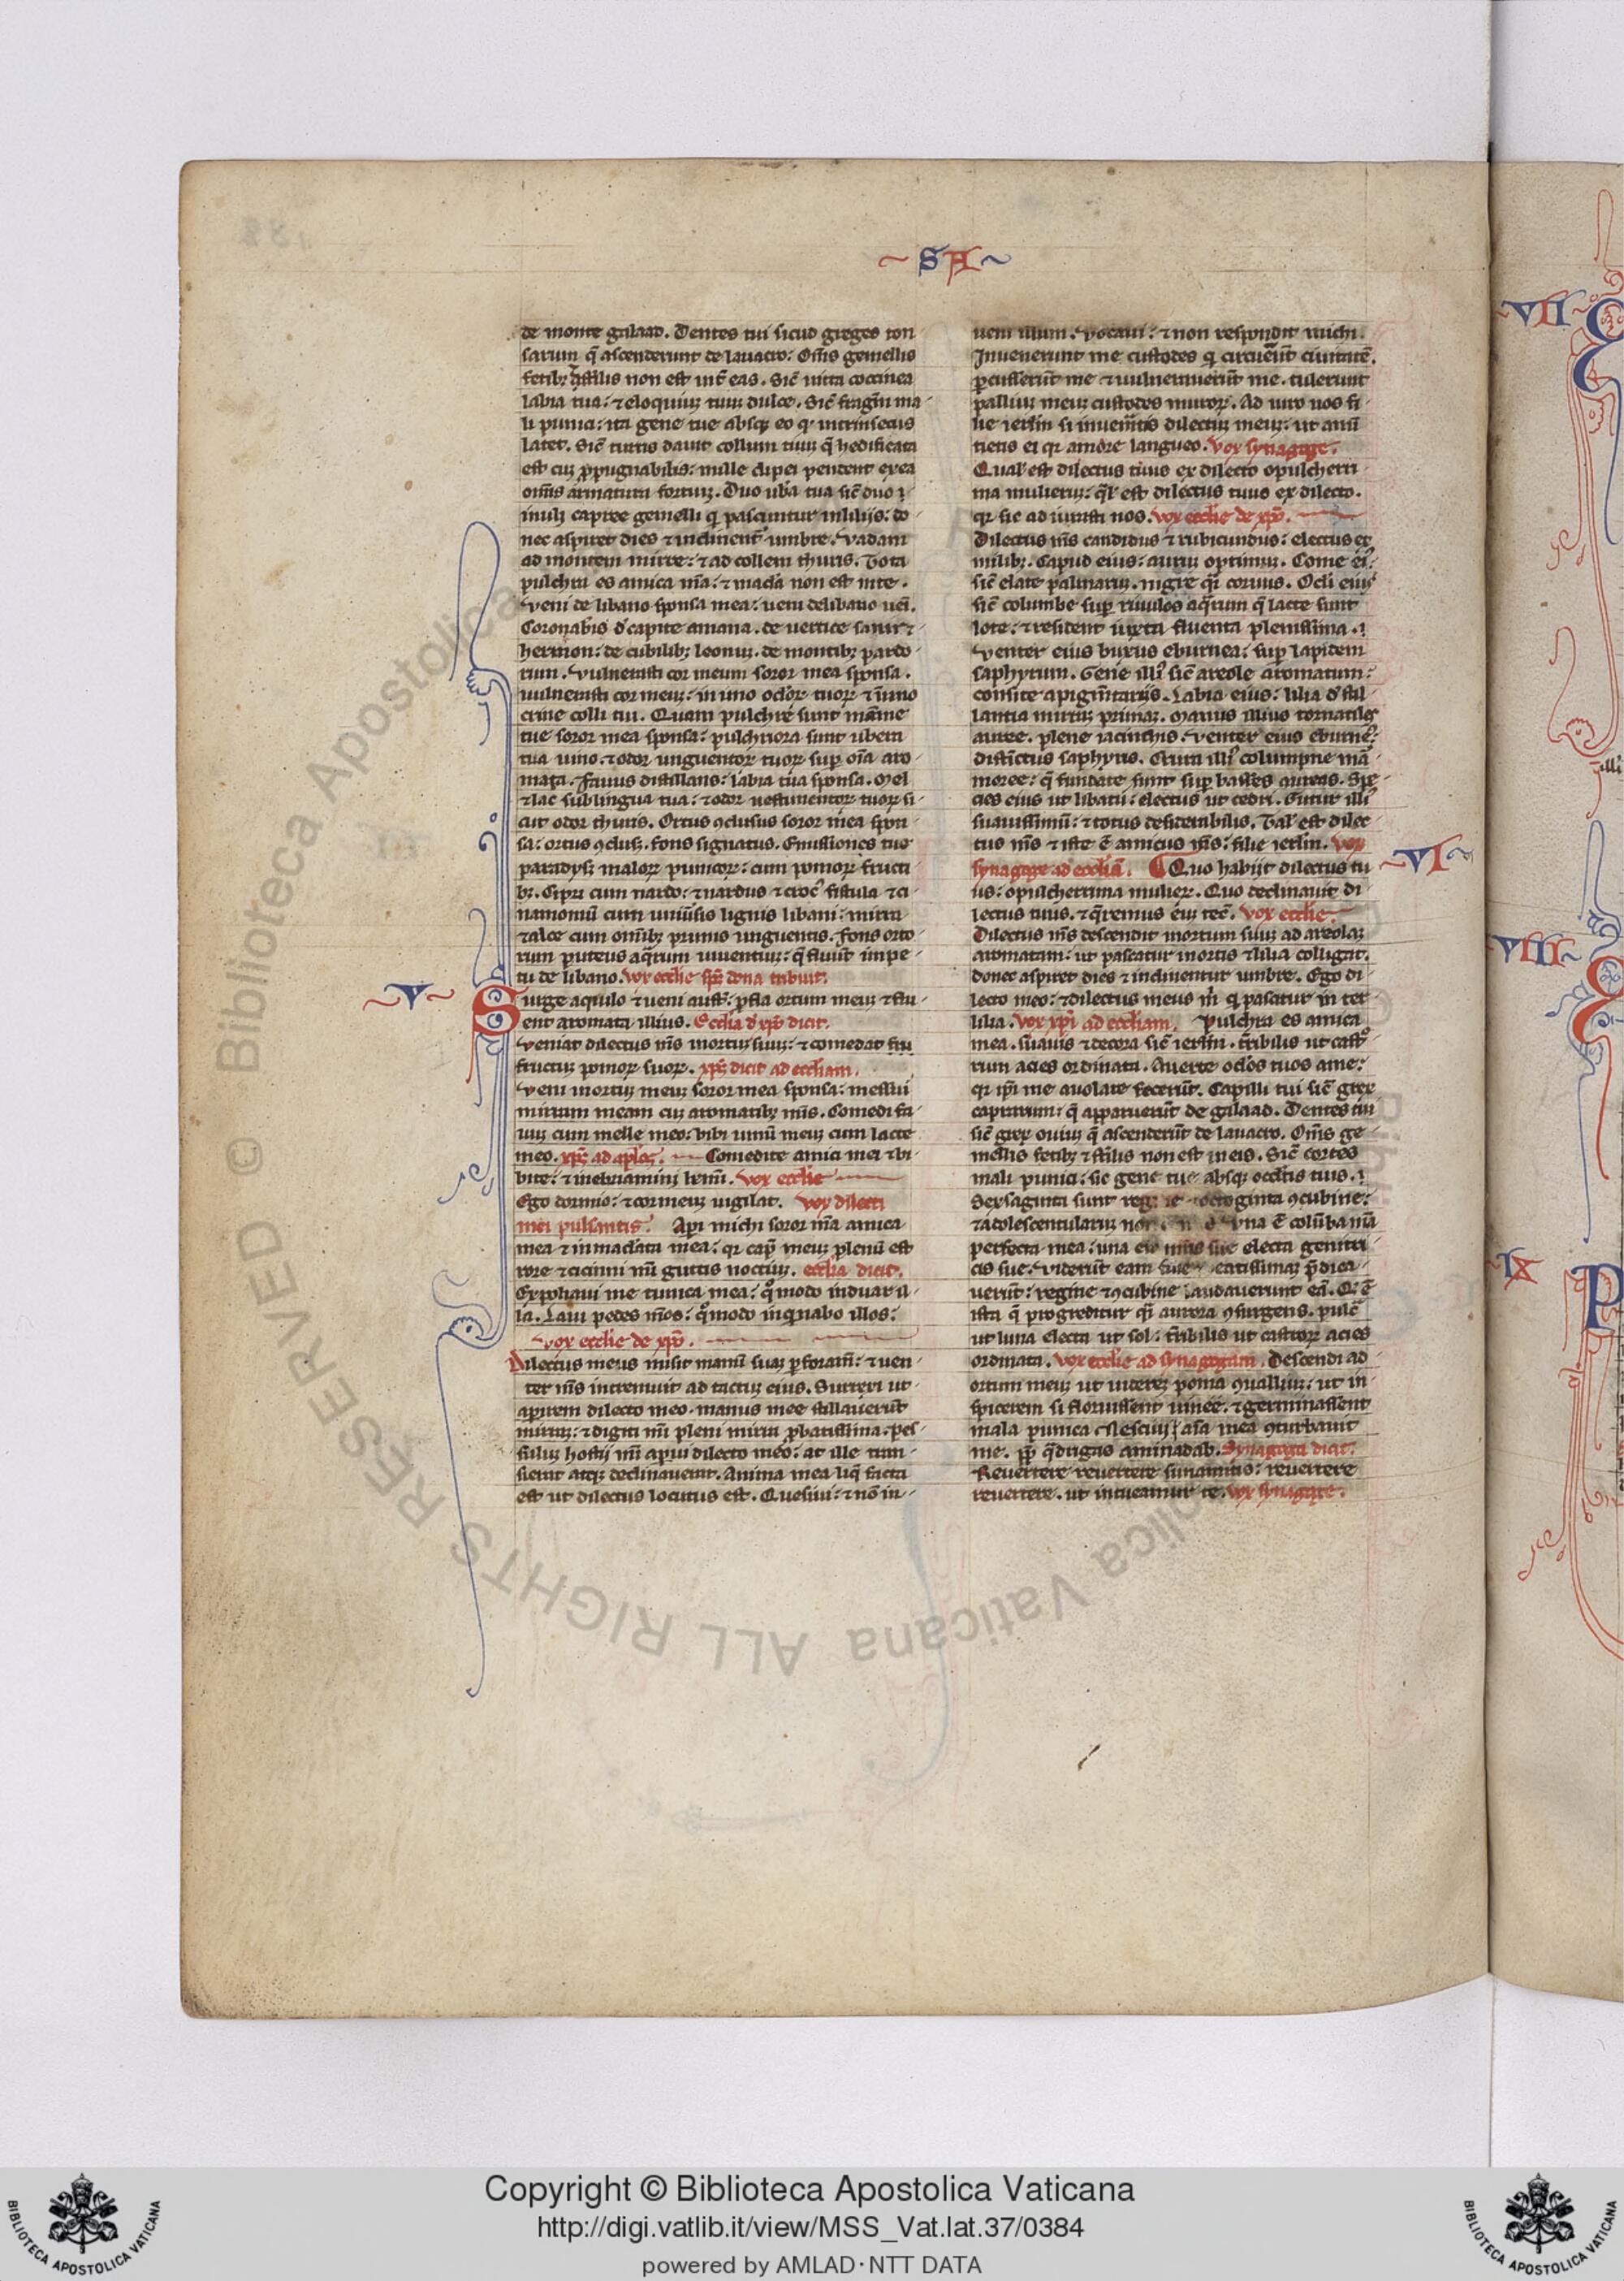 ~ SA ~
de monte galaad. Dentes tui sicud greges ton
sarum q̄ ascenderunt de lauacro: Om̄s gemellis
fetibꝫ ⁊ st̄ilis non est int̄ eas. Sic̄ uitta coccinea
labia tua: ⁊ eloquiuꝫ tuuꝫ dulce. Sic̄ fragm̄ ma
li punici: ita gene tue absqꝫ eo qꝛ intrinsecus
latet. Sic̄ turris dauit collum tuuꝫ q̄ hedificata
est cuꝫ ꝓpugnabilis: mille clipei pendent ex ea
om̄is armatura fortiuꝫ. Duo ub̄a tua sic̄ duo ı
inuli capree gemelli q̇ pascuntur in lilijs: do
nec aspiret dies ⁊ inclinent̄ umbre. Vadam
ad montem mirre: ⁊ ad collem thuris. Tota
pulchra es amica m̄a: ⁊ mac̄la non est in te.
Veni de libano sponsa mea: ueni de libano uēi.
Coronab̄is d̄ capite amana. de uertice sanir ⁊
hermon: de cubilibꝫ leonuꝫ. de montibꝫ pardo
rum. Vulnerasti cor meum soror mea sponsa.
uulnerasti cor meuꝫ: in uno oclo̅ꝝ tuoꝝ ⁊ ī uno
crine colli tui. Quam pulchre sunt mām̄e
tue soror mea sponsa: pulchriora sunt ubera
tua uino. ⁊ odor unguentoꝝ tuoꝝ suꝑ oīa aro
mata. Fauus distillans: labia tua sponsa. Mel
⁊ lac sub lingua tua: ⁊ odor uestimentoꝝ tuoꝝ si
cut odor thuris. Ortus ꝯclusus soror mea spon
sa: ortus ꝯclusꝫ. fons signatus. Emissiones tue
paradysꝫ maloꝝ punicoꝝ: cum pomoꝝ fructi
bꝫ. Cipri cum nardo: ⁊ nardus ⁊ croc̄ fistula ⁊ ci
namomū cum uniu̅sis lignis libani: mirra
⁊ aloe cum om̄ibꝫ primis unguentis. Fons orto
rum puteus aq̄rum uiuentiuꝫ: q̄ fluūt impe
tu de libano. Vox eccl̄ie
V
Surge aquilo ⁊ ueni aust̄: ꝑfla ortum meuꝫ ⁊ flu
ent aromata illius. Eccl̄ia d̄ xp̄o dicit.
Veniat dilectus m̄s in ortuꝫ suuꝫ: ⁊ comedat
fructuꝫ pomoꝝ suoꝝ. xp̄c dicit ad eccl̄iam.
Veni in ortuꝫ meuꝫ soror mea sponsa: messui
mirram meam cuꝫ aromatibꝫ m̄is. Comedi fa
uuꝫ cum melle meo: bibi uinū meuꝫ cum lacte
meo. xp̄c ad apl̄os. Comedite amici mei ⁊ bi
bite: ⁊ inebriamini Vox eccl̄ie
Ego dormio: ⁊ cor meuꝫ uigilat. Vox dilecti
mei pulsantis. Aperi michi soror m̄a amica
mea ⁊ inmac̄lata mea: qꝛ cap̄ meuꝫ plenū est
rore ⁊ cicinni m̄i guttis noctiuꝫ. eccl̄ia dicit.
Expoliaui me tunica mea: q̊modo induar il
la. Laui pedes m̄os: q̊modo inq̇nabo illos:
Vox eccl̄ie de xp̄o.
Dilectus meus misit manū suaꝫ ꝑ foram̄: ⁊ uen
ter m̄s intremuit ad tactuꝫ eius. Surrexi ut
aperirem dilecto meo. manus mee stillauerūt
mirraꝫ: ⁊ digiti m̄i pleni mirra ꝓbatissima. Pes
suluꝫ hostij m̄i aperui dilecto meo: at ille tran
sierat atqꝫ declinauerat. Anima mea liq̄ facta
est ut dilectus locutus est. Quesiui: ⁊ nō in
ueni illum. Vocaui: ⁊ non respondit michi.
Inuenerunt me custodes q̇ circuēūt ciuitatē.
ꝑcusserūt me ⁊ uulnerauerūt me. tulerunt
palliuꝫ meuꝫ custodes muroꝝ. Ad iuro uos fi
lie ierl̄m si inuen̄itis dilectuꝫ meuꝫ: ut anū
tietis ei qꝛ amore langueo. Vox synagoge.
Qual̄ est dilectus tuus ex dilecto o pulcherri
ma mulieruꝫ: q̄l̄ est dilectus tuus ex dilecto.
qꝛ sic ad iurasti nos. Vox eccl̄ie de xp̄o.
Dilectus m̄s candidus ⁊ rubicundus: electus ex
milibꝫ. Capud eius: auruꝫ optimuꝫ. Come ei⁹
sic̄ elate palmaruꝫ. nigre q̄si coruus. Ocl̄i eius
sic̄ columbe suꝑ riuulos aq̄rum q̄ lacte sunt
lote: ⁊ resident iuxta fluenta plenissima. ı
Venter eius eburnea: suꝑ lapidem
saphyrum. Gene illi⁹ sic̄ areole aromatum:
consite a pigm̄tarijs. Labia eius: lilia d̄stil
lantia mirraꝫ primaꝫ. Manus illius tornatiles
auree. plene iacinctis. Venter eius eburne⁹:
distinctus saphyris. Crura illi⁹ columpne mar̄
moree: q̄ fundate sunt suꝑ basses aureas. Spe
cies eius ut libani: electus ut cedri. Gutur illi⁹
suauissimū: ⁊ totus desiderabilis. Tal̄ est dilec
tus m̄s ⁊ iste ē amicus m̄s: filie ierl̄m. Vox
VI
synagoge ad eccl̄iā. Quo habijt dilectus tu
us: o pulcherrima mulieꝝ. Quo declinauit di
lectus tuus. ⁊ q̄remus eūꝫ tec̄. Vox eccl̄ie
Dilectus m̄s descendit in ortum suuꝫ ad areolaꝫ
aromatum: ut pascatur in ortis ⁊ lilia colligat.
donec aspiret dies ⁊ inclinentur umbre. Ego di
lecto meo: ⁊ dilectus meus m̄ q̇ pascatur in ter
lilia. Vox xp̄i ad eccl̄iam. Pulchra es amica
mea. suauis ⁊ decora sic̄ ierl̄m. t̄ribilis ut cast̊ꝝ
rum acies ordinata. Auerte ocl̄os tuos a me:
qꝛ ip̄i me auolare fecerūt. Capilli tui sic̄ grex
caprarum: q̄ apparuerūt de galaad. Dentes tui
sic̄ grex ouiuꝫ q̄ ascenderūt de lauacro. Om̄s ge
mellis fetibꝫ ⁊ st̄ilis non est in eis. Sic̄ cortex
mali punici: sic gene tue absqꝫ occl̄tis tuis. ı
Sexsaginta sunt reg octoginta ꝯcubine:
⁊ adolescentularuꝫ Vna ē colūba m̄a
perfecta mea: una electa genitri
cis sue. Viderūt eam eatissimaꝫ p̄dica
uerūt: regine ⁊ ꝯcubine laudauerunt eā. Q̄ ē
ista q̄ progreditur q̄si aurora ꝯsurgens. pulc̄
ut luna electa ut sol: t̄ribilis ut castroꝝ acies
ordinata. Vox eccl̄ie ad synagogam. Descendi ad
ortum meuꝫ ut uiderem poma ꝯualliuꝫ: ut in
spicerem si floruissent uinee. ⁊ germinassent
mala punica. Nesciui: aīa mea ꝯturbauit
me. ꝓp̄ q̄drigas aminadab. Synagoga dicit.
Reuertere reuertere sunamitis: reuertere
reuertere. ut intueamur te. Vox synagoge.
VII
VIII
IX
P
Copyright © Biblioteca Apostolica Vaticana
http://digi.vatlib.it/view/MSS_Vat.lat.37/0384
powered by AMLAD·NTT DATA
BIBLIOTECA APOSTOLICA VATICANA
BIBLIOTECA APOSTOLICA VATICANA